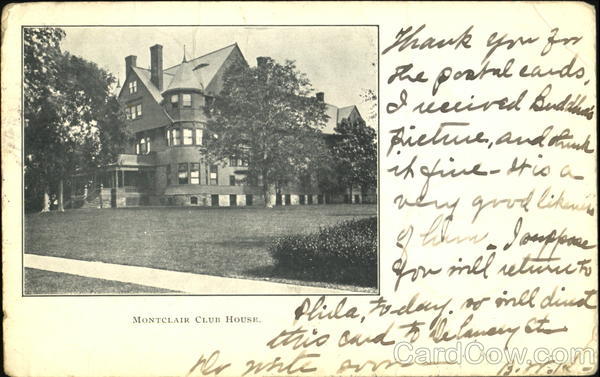 Thank you for
the postal cards,
I received Buddha's
picture, and think
it fine - It is a
very good likeness
of him - I suppose
you will return to
Phila, to-day, so will direct
this card to Delancey St.
Do write soon -
MONTCLAIR CLUB HOUSE.
CardCow.com